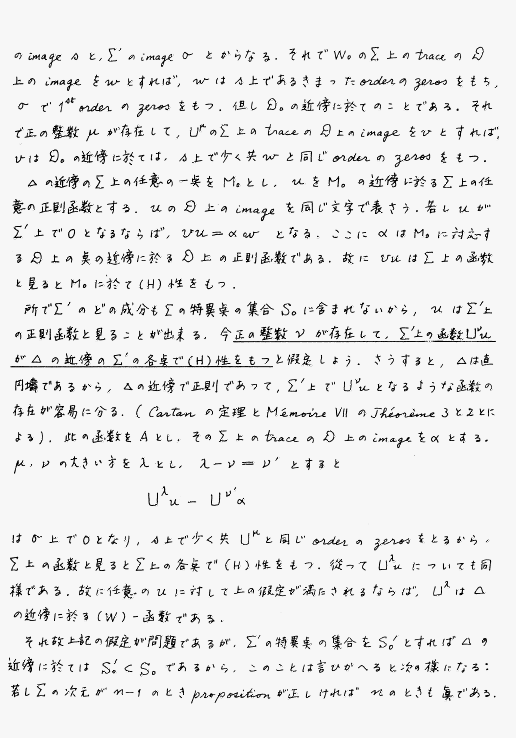 の image s と, Σ' の image σ とからなる. それで W₀ の Σ 上の trace の 𝔇
上の image を w とすれば, w は s 上であるきまった order の zeros をもち,
σ で 1st order の zeros をもつ. 但し 𝔇₀ の近傍に於てのことである. それ
で正の整数 μ が存在して, U^μ の Σ 上の trace の 𝔇 上の image を v とすれば,
v は 𝔇₀ の近傍に於ては, s 上で少く共 w と同じ order の zeros をもつ.
Δ の近傍の Σ 上の任意の一点を M₀ とし, u を M₀ の近傍に於る Σ 上の任
意の正則函数とする. u の 𝔇 上の image を同じ文字で表さう. 若し u が
Σ' 上で 0 となるならば, vu = αw となる. ここに α は M₀ に対応す
る 𝔇 上の点の近傍に於る 𝔇 上の正則函数である. 故に vu は Σ 上の函数
と見ると M₀ に於て (H) 性をもつ.
所で Σ' のどの成分も Σ の特異点の集合 S₀ に含まれないから, u は Σ' 上
の正則函数と見ることが出来る. 今正の整数 ν が存在して, Σ' 上の函数 U^ν u
が Δ の近傍の Σ' の各点で (H) 性をもつと假定しよう. さうすると, Δ は直
円壔であるから, Δ の近傍で正則であつて, Σ' 上で U^ν u となるような函数の
存在が容易に分る. ( Cartan の定理と Mémoire VII の Théorème 3 と 2 とに
よる). 此の函数を A とし, その Σ 上の trace の 𝔇 上の image を α とする.
μ, ν の大きい方を λ とし, λ − ν = ν' とすると
U^λ u − U^ν' α
は σ 上で 0 となり, s 上で少く共 U^μ と同じ order の zeros をとるから,
Σ 上の函数と見ると Σ 上の各点で (H) 性をもつ. 従つて U^λ u についても同
様である. 故に任意の u に対して上の假定が満たされるならば, U^λ は Δ
の近傍に於る (W) - 函数である.
それ故上記の假定が問題であるが, Σ' の特異点の集合を S₀' とすれば Δ の
近傍に於ては S₀' < S₀ であるから, このことは言ひかへると次の様になる:
若し Σ の次元が n-1 のとき proposition が正しければ n のときも真である.